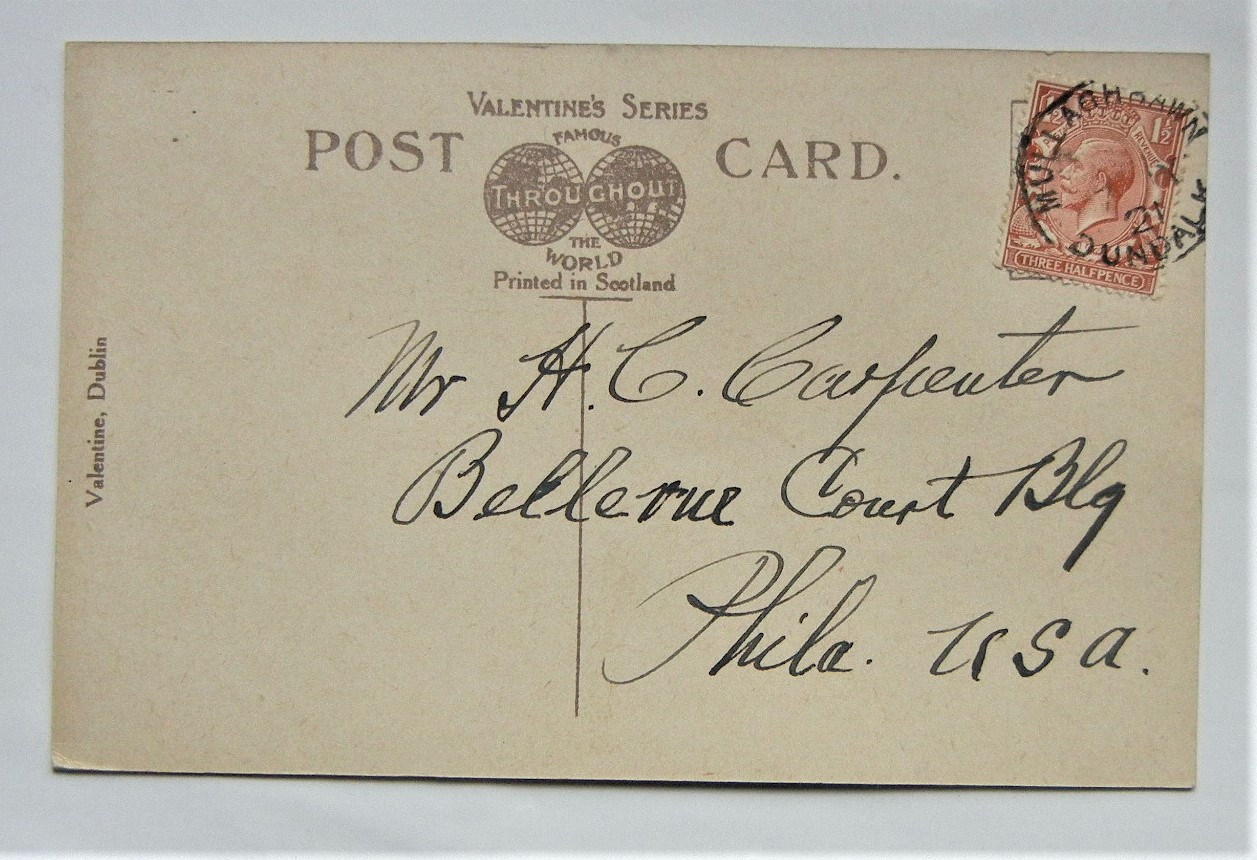 VALENTINE'S SERIES
POST CARD.
FAMOUS
THROUGHOUT
THE
WORLD
Printed in Scotland
Valentine, Dublin
1½
REVENUE
THREE HALFPENCE
21
DUNDALK
Mr H. C. Carpenter
Bellevue Court Blg
Phila. USA.